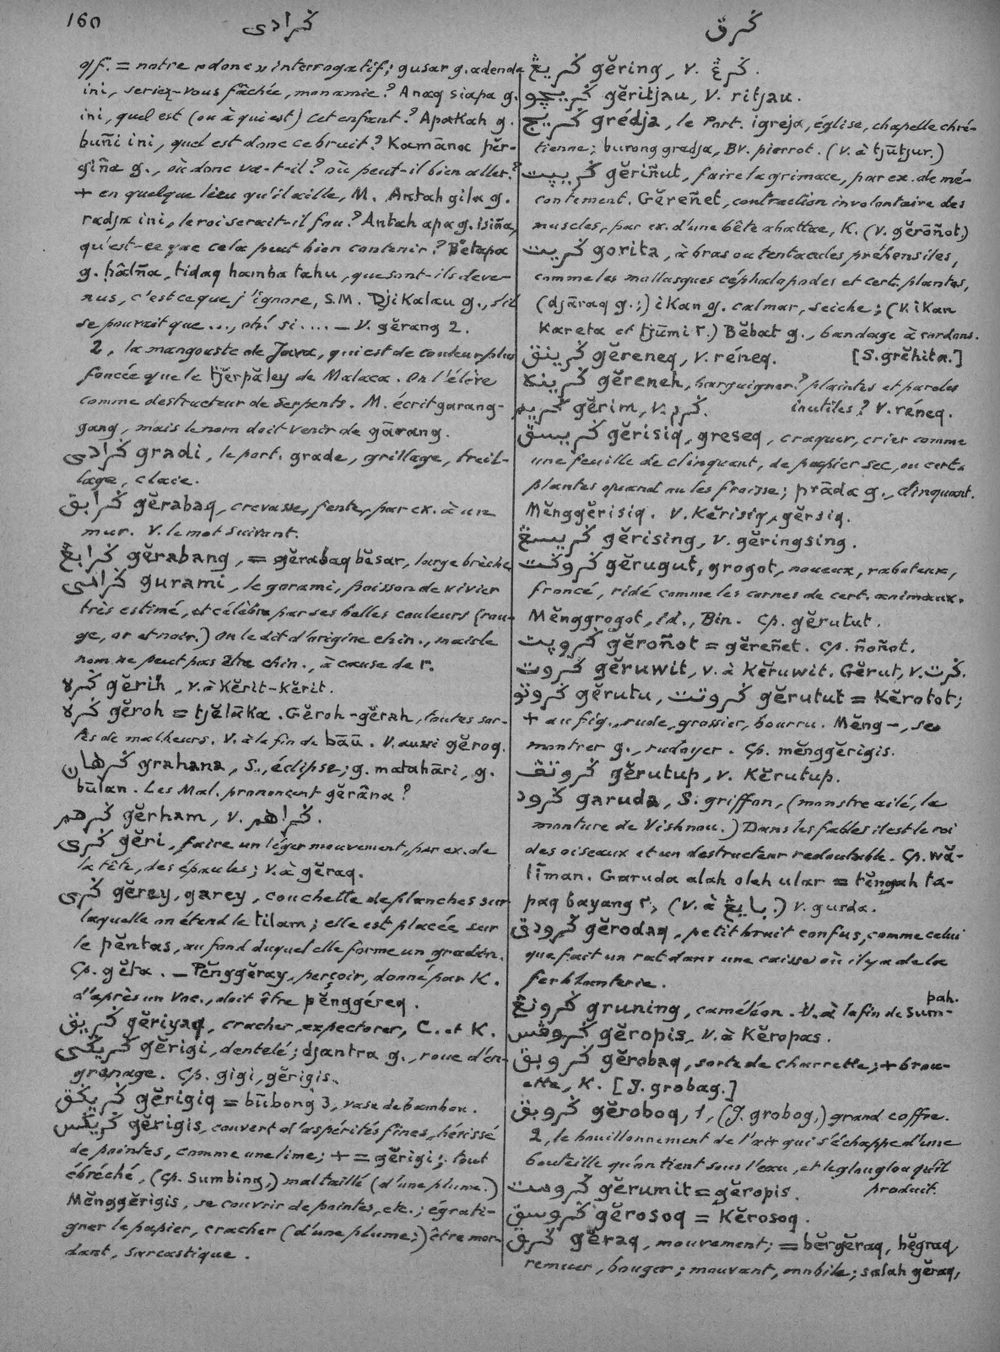 160
ݢرادى
ݢرق
qf. = notre « donc » interrogatif; gusar g. adenda
ini, seriez-vous fâchée, mon amie? Anaq siapa g.
ini, quel est (ou à qui est) cet enfant? Apakah g.
buñi ini, quel est donc ce bruit? Kamāna pĕr-
giña g., où donc va-t-il? où peut-il bien aller?
+ en quelque lieu qu'il aille, M. Antah gila g.
radja ini, le roi serait-il fou? Antah apa g. isiña,
qu'est-ce que cela peut bien contenir? Bĕtapa
g. hālña, tidaq hamba tahu, que sont-ils deve-
nus, c'est ce que j'ignore, S.M. Djikalau g., s'il
se pouvait que ..., oh! si .... — V. gĕrang 2.
2, la mangouste de Java, qui est de couleur plus
foncée que le tjĕrpăley de Malaca. On l'élève
comme destructeur de serpents. M. écrit garang-
gang, mais le nom doit venir de gārang.
ݢرادى gradi, le port. grade, grillage, treil-
lage, claie.
ݢرابق gĕrabaq, crevasse, fente, par ex. à un
mur. V. le mot suivant.
ݢرابڠ gĕrabang, = gĕrabaq bĕsar, large brèche.
ݢرامى gurami, le gorami, poisson de vivier
très estimé, et célèbre par ses belles couleurs (rou-
ge, or et noir.) On le dit d'origine chin., mais le
nom ne peut pas être chin., à cause de r.
ݢره gĕrih, v. à Kĕrit-Kĕrit.
ݢره gĕroh = tjĕlāka. Gĕroh-gĕrah, toutes sor-
tes de malheurs. V. à la fin de bāū. V. aussi gĕroq.
ݢرهان grahana, S., éclipse; g. matahāri, g.
būlan. Les Mal. prononcent gĕrāna?
ݢرهم gĕrham, v. ݢراهم.
ݢرى gĕri, faire un léger mouvement, par ex. de
la tête, des épaules; v. à gĕraq.
ݢرى gĕrey, garey, couchette de planches sur
laquelle on étend le tilam; elle est placée sur
le pĕntas, au fond duquel elle forme un gradin.
Cp. gĕta. — Pĕnggĕray, perçoir, donné par K.
d'après un Voc., doit être pĕnggéreq.
ݢريق gĕriyaq, cracher, expectorer, C. et K.
ݢريݢى gĕrigi, dentelé; djantra g., roue d'en-
grenage. Cp. gigi, gĕrigis.
ݢريݢق gĕrigiq = būbong 3, vase de bambou.
ݢريݢس gĕrigis, couvert d'aspérités fines, hérissé
de pointes, comme une lime; + = gĕrigi; tout
ébréché, (Cp. Sumbing,) mal taillé (d'une plume.)
Mĕnggĕrigis, se couvrir de pointes, etc.; égrati-
gner le papier, cracher (d'une plume;) être mor-
dant, sarcastique.
ݢريڠ gĕring, v. ݢرڠ.
ݢريچو gĕritjau, v. ritjau.
ݢريج grédja, le Port. igreja, église, chapelle chré-
tienne; burong gredja, Bv. pierrot. (v. à tjūtjur.)
gĕriñut, faire la grimace, par ex. de mé-
contement. Gĕrĕñet, contraction involontaire des
muscles, par ex. d'une bête abattue, K. (v. gĕroñot.)
ݢريت gorita, à bras ou tentacules préhensiles,
comme les mollusques céphalopodes et cert. plantes,
(djāraq g.;) ikan g. calmar, seiche; (v. ikan
kareta et tjūmi r.) Bĕbat g., bandage à cordons.
ݢرينق gĕreneq, v. réneq. [S. grĕhita.]
ݢرينه gĕreneh, barguigner? plaintes et paroles
inutiles? V. réneq.
ݢريم gĕrim, v. ݢرم.
ݢريسق gĕrisiq, greseq, craquer, crier comme
une feuille de clinquant, de papier sec, ou cert.
plantes quand on les froisse; prāda g., clinquant.
Mĕnggĕrisiq. V. Kĕrisiq, gĕrsiq.
ݢريسڠ gĕrising, v. gĕringsing.
ݢروݢت gĕrugut, grogot, noueux, raboteux,
froncé, ridé comme les cornes de cert. animaux.
Mĕnggrogot, id., Bin. Cp. gĕrutut.
gĕroñot = gĕrĕñet. Cp. ñoñot.
ݢروت gĕruwit, v. à Kĕruwit. Gĕrut, v. ݢرت.
ݢروتو gĕrutu, ݢروتت gĕrutut = Kĕrotot;
+ au fig., rude, grossier, bourru. Mĕng—, se
montrer g., rudoyer. Cp. mĕnggĕrigis.
ݢروتڤ gĕrutup, v. Kĕrutup.
ݢرود garuda, S. griffon, (monstre ailé, la
monture de Vishnou.) Dans les fables il est le roi
des oiseaux et un destructeur redoutable. Cp. wă-
līman. Garuda alah oleh ular = tĕngah ta-
paq bayang r, (v. à بايڠ.) v. gurda.
ݢرودق gĕrodaq, petit bruit confus, comme celui
que fait un rat dans une caisse où il y a de la
ferblanterie.
ݢرونڠ gruning, caméléon. V. à la fin de sum-
pah.
ݢروڤس gĕropis, v. à Kĕropas.
ݢروبق gĕrobaq, sorte de charrette; + brou-
ette, K. [J. grobag.]
ݢروبق gĕroboq, 1, (J. grobog,) grand coffre.
2, le bouillonnement de l'air qui s'échappe d'une
bouteille qu'on tient sous l'eau, et le glouglou qu'il
produit.
ݢرومت gĕrumit = gĕropis.
ݢروسق gĕrosoq = Kĕrosoq.
ݢرق gĕraq, mouvement; = bĕrgĕraq, bĕgraq,
remuer, bouger; mouvant, mobile; salah gĕraq,